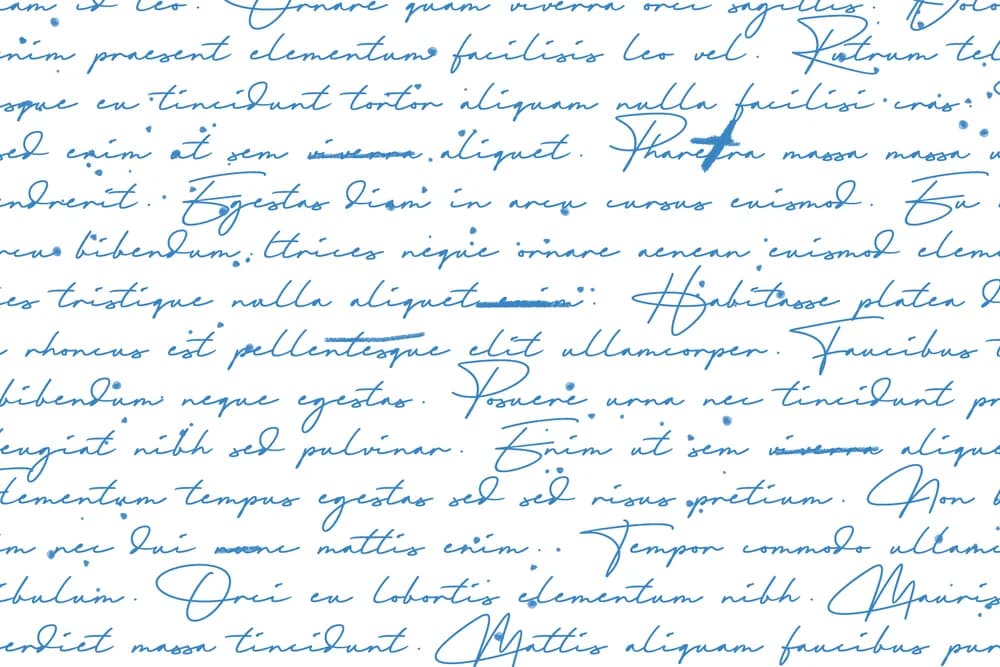 id leo. Ornare quam viverra orci sagittis.
enim praesent elementum facilisis leo vel. Rutrum
eu tincidunt tortor aliquam nulla facilisi cras.
sed enim at sem viverra aliquet. Pharetra massa massa
Egestas diam in arcu cursus euismod. Eu
bibendum. ttrices neque ornare aenean euismod
tristique nulla aliquet enim. Habitasse platea
rhoncus est pellentesque elit ullamcorper. Faucibus
bibendum neque egestas. Posuere urna nec tincidunt
feugiat nibh sed pulvinar. Enim ut sem viverra
elementum tempus egestas sed sed risus pretium. Non
nec dui nunc mattis enim.. Tempor commodo
Orci eu lobortis elementum nibh. Mauris
massa tincidunt. Mattis aliquam faucibus